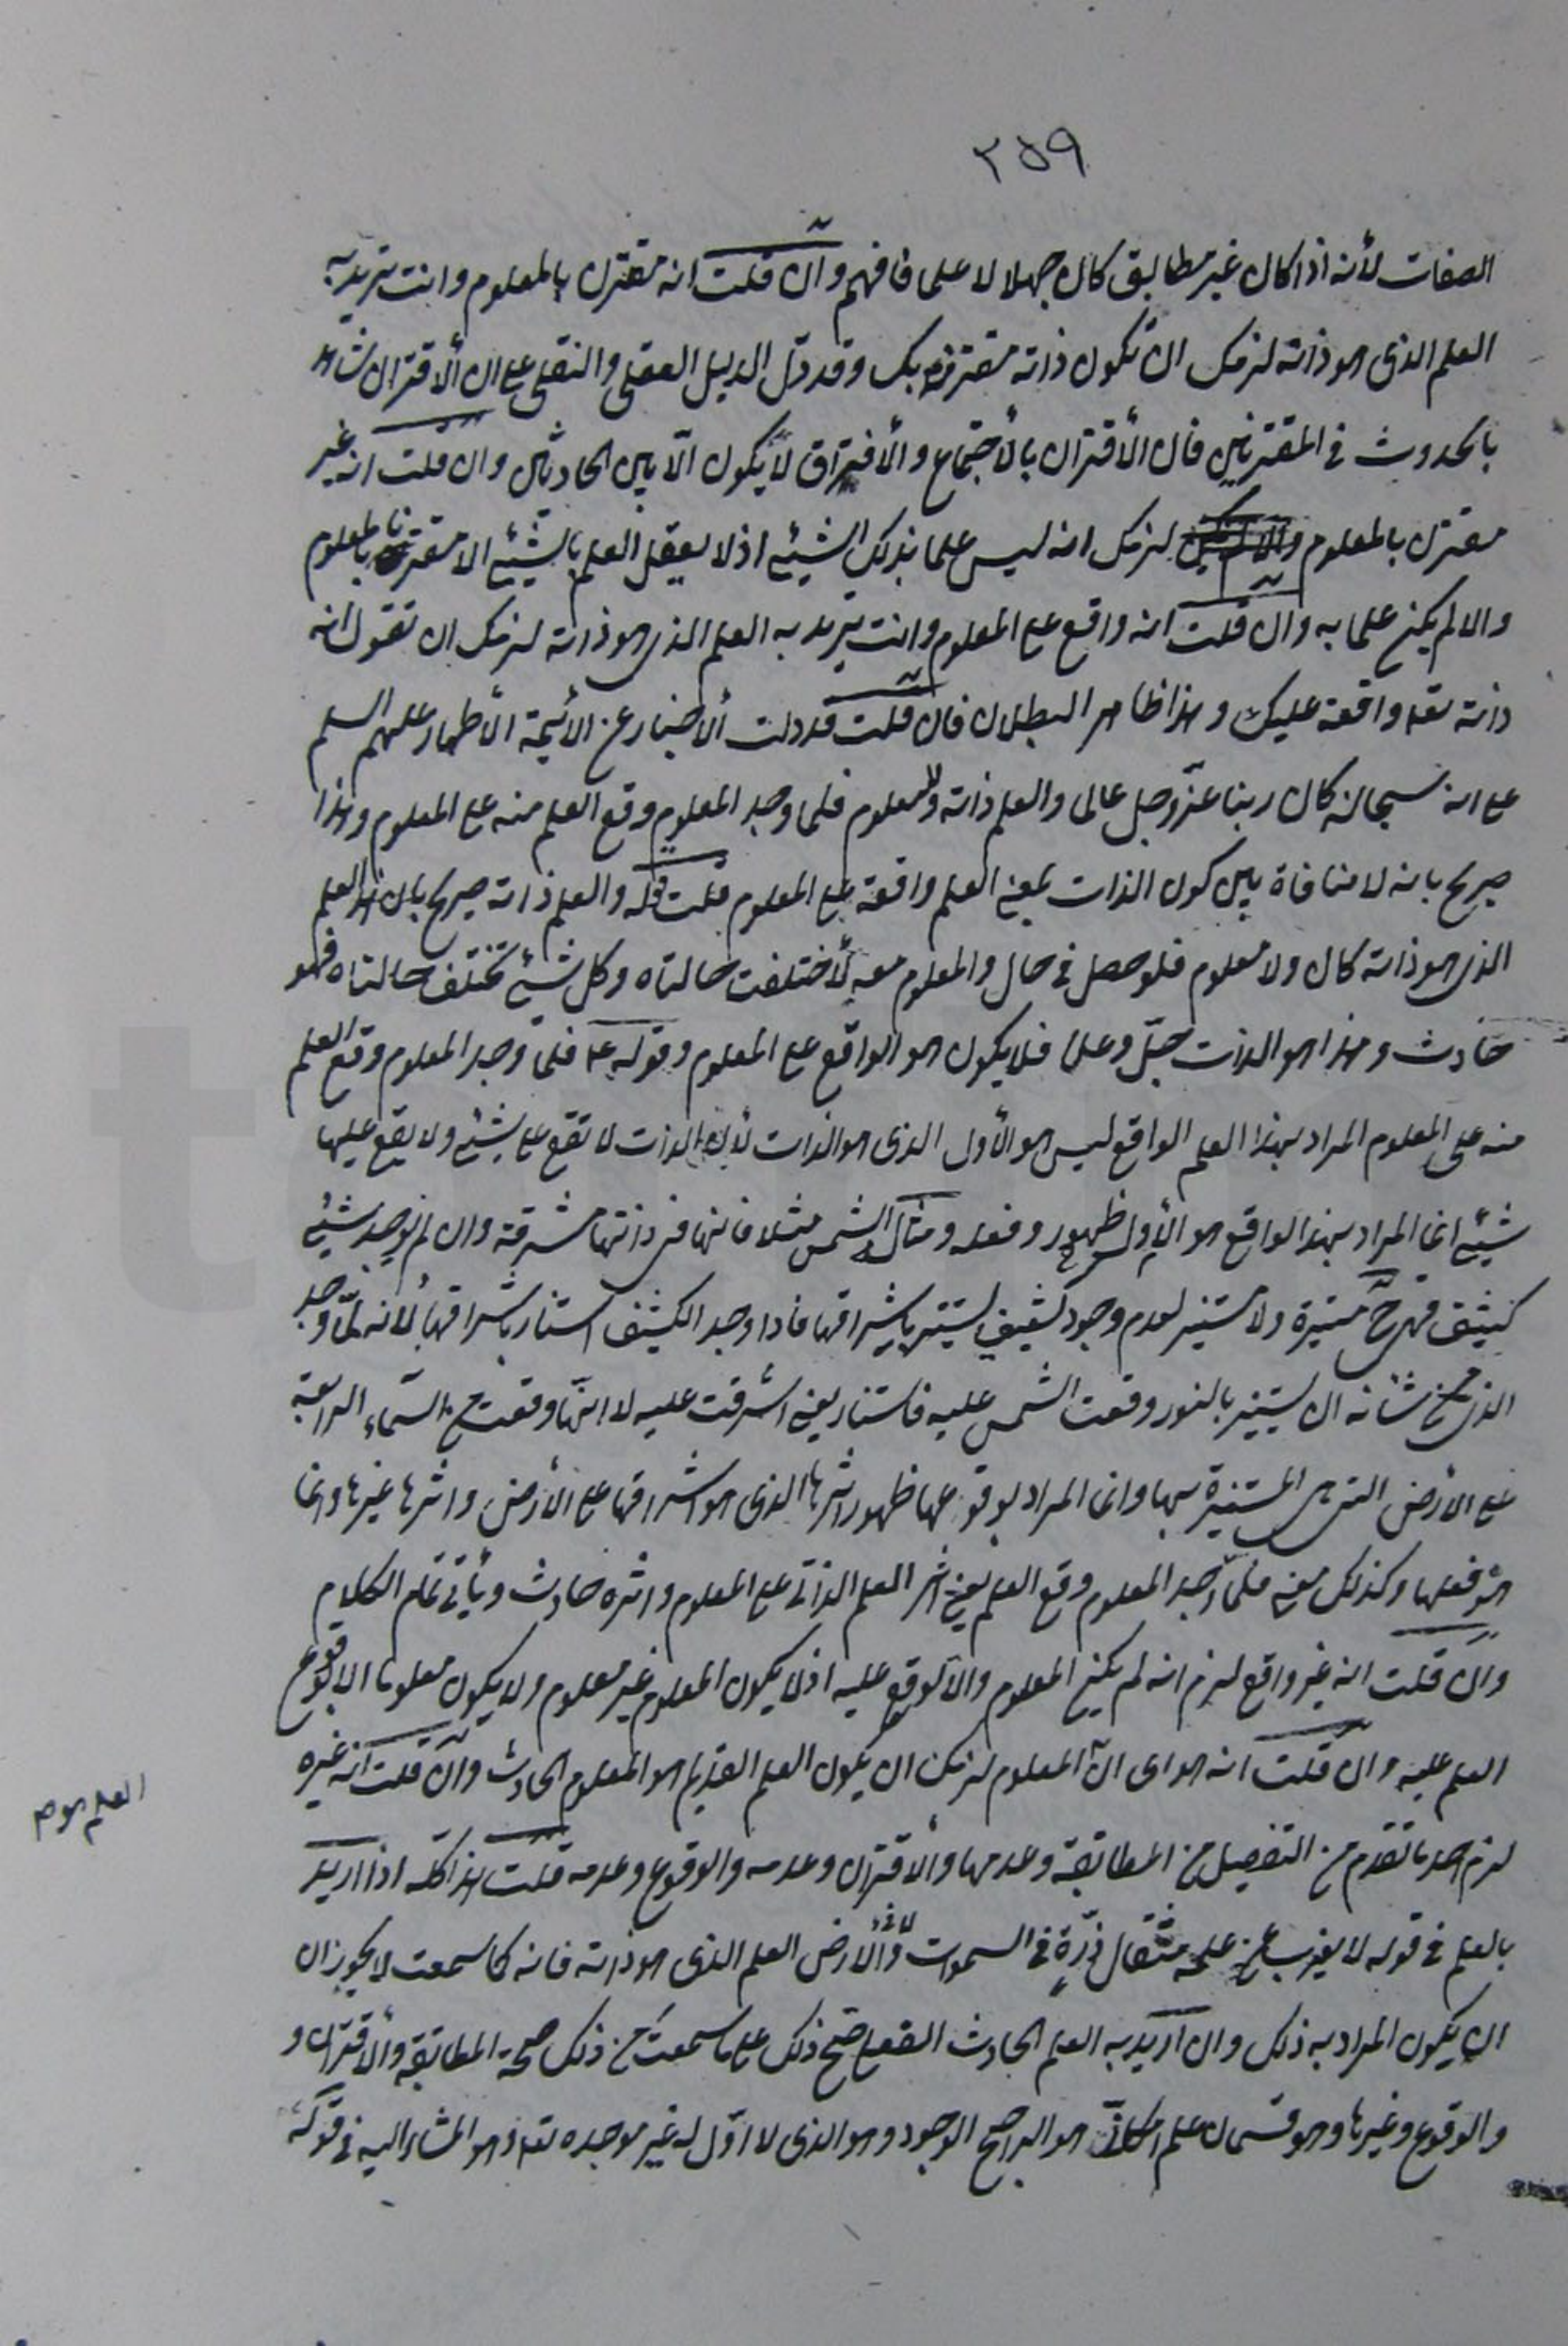 ٢٥٩
الصفات لأنه اذا كان غير مطابق كان جهلا لا علما فافهم وان قلت انه مقترن بالمعلوم وانت تريد به
العلم الذى هو ذاته لزمك ان تكون ذاته مقترنة بك وقد دلّ الدليل العقلى والنقلى على ان الأقتران شاهد
بالحدوث فى المقترنين فان الأقتران بالأجتماع والأفتراق لا يكون الّا بين الحادثين وان قلت انه غير
مقترن بالمعلوم لزمك انه ليس علما بذلك الشيئ اذ لا يعقل العلم بالشيئ الا مقترنا بالمعلوم
والا لم يكن علما به وان قلت انه واقع على المعلوم وانت تريد به العلم الذى هو ذاته لزمك ان تقول انه
ذاته تعه واقعة عليك وهذا ظاهر البطلان فان قلت قد دلت الأخبار عن الأئمة الأطهار عليهم السلم
على انه سبحانه كان ربنا عزّ وجل عالما والعلم ذاته ولا معلوم فلما وجد المعلوم وقع العلم منه على المعلوم وهذا
صريح بانه لا منافاة بين كون الذات بمعنى العلم واقعة على المعلوم قلت قوله والعلم ذاته صريح بان هذا العلم
الذى هو ذاته كان ولا معلوم فلو حصل فى حال والمعلوم معه لأختلفت حالتاه وكل شيئ تختلف حالتاه فهو
حادث وهذا هو الذات جلّ وعلا فلا يكون هو الواقع على المعلوم وقوله ع فلما وجد المعلوم وقع العلم
منه على المعلوم المراد بهذا العلم الواقع ليس هو الأول الذى هو الذات لأن الذات لا تقع على شيئ ولا يقع عليها
شيئ انما المراد بهذا الواقع هو الأول ظهور وفعله ومثال الشمس مثلا فانها فى ذاتها مشرقة وان لم يوجد شيئ
كثيف فهى ح منيرة ولا مستنير لعدم وجود كثيف يستنير باشراقها فاذا وجد الكثيف استنار باشراقها لأنه لمّا وجد
الذى من شانه ان يستنير بالنور وقعت الشمس عليه فاستنار يعنى اشرقت عليه لا انها وقعت من السّماء الرابعة
على الأرض التى هى المستنيرة بها وانما المراد بوقوعها ظهور اثرها الذى هو اشراقها على الأرض واثرها غيرها وانما
هو فعلها وكذلك معنى فلما وجد المعلوم وقع العلم يعنى اثر العلم الذاتى على المعلوم واثره حادث ويأتى تمام الكلام
وان قلت انه غير واقع لزم انه لم يكن المعلوم والّا لوقع عليه اذ لا يكون المعلوم غير معلوم ولا يكون معلوما الا بوقوع
العلم عليه وان قلت انه هو اى انّ المعلوم لزمك ان يكون العلم القديم هو المعلوم الحادث وان قلت انه غيره
لزم احد ما تقدم من التفصيل من المطابقة وعدمها والأقتران وعدمه والوقوع وعدمه قلت هذا كله اذا اريد
بالعلم فى قوله لا يعزب عن علمه مثقال ذرّة فى السموات ولا فى الأرض العلم الذى هو ذاته فانه كما سمعت لا يجوز ان
ان يكون المراد به ذلك وان اريد به العلم الحادث الفعلى صح ذلك على ما سمعت من ذلك صحة المطابقة والأقتران و
والوقوع وغيرها وهو قسمان علم امكانىّ هو الراجح الوجود وهو الذى لا اوّل له غير موجده تعه وهو المشار اليه فى قوله
العلم هو م